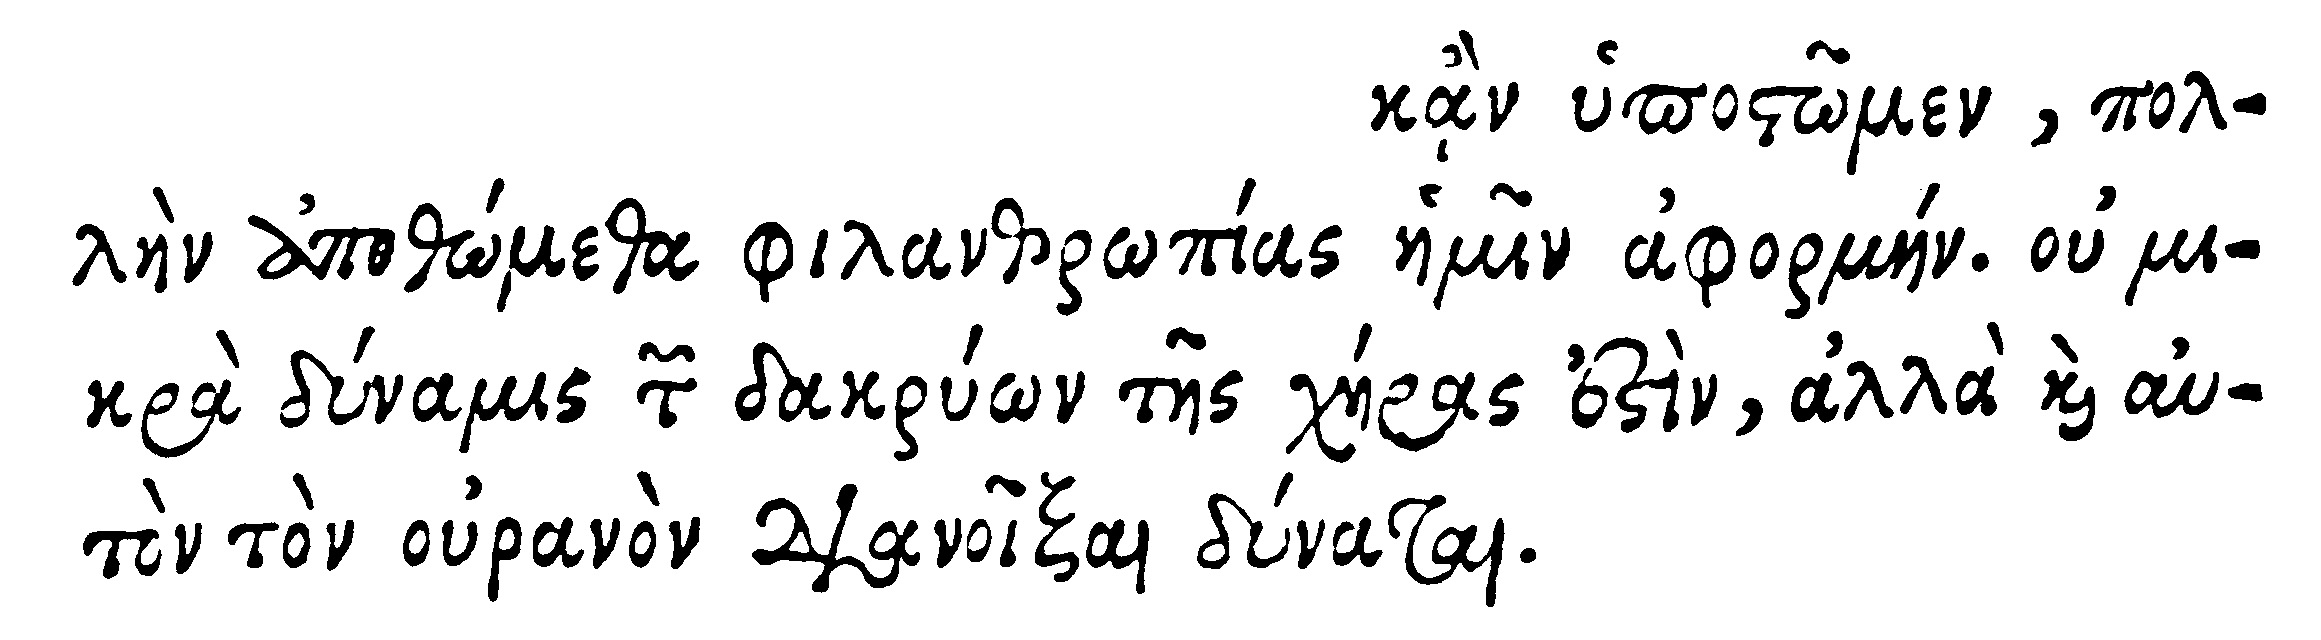 κᾂν ὑποστῶμεν, πολ-
λὴν ἀποθώμεθα φιλανθρωπίας ἡμῖν ἀφορμήν. οὐ μι-
κρὰ δύναμις τ͂ δακρύων τῆς χήρας ἐστὶν, ἀλλὰ ϗ̀ αὐ-
τὸν τὸν οὐρανὸν διανοῖξαι δύναται.